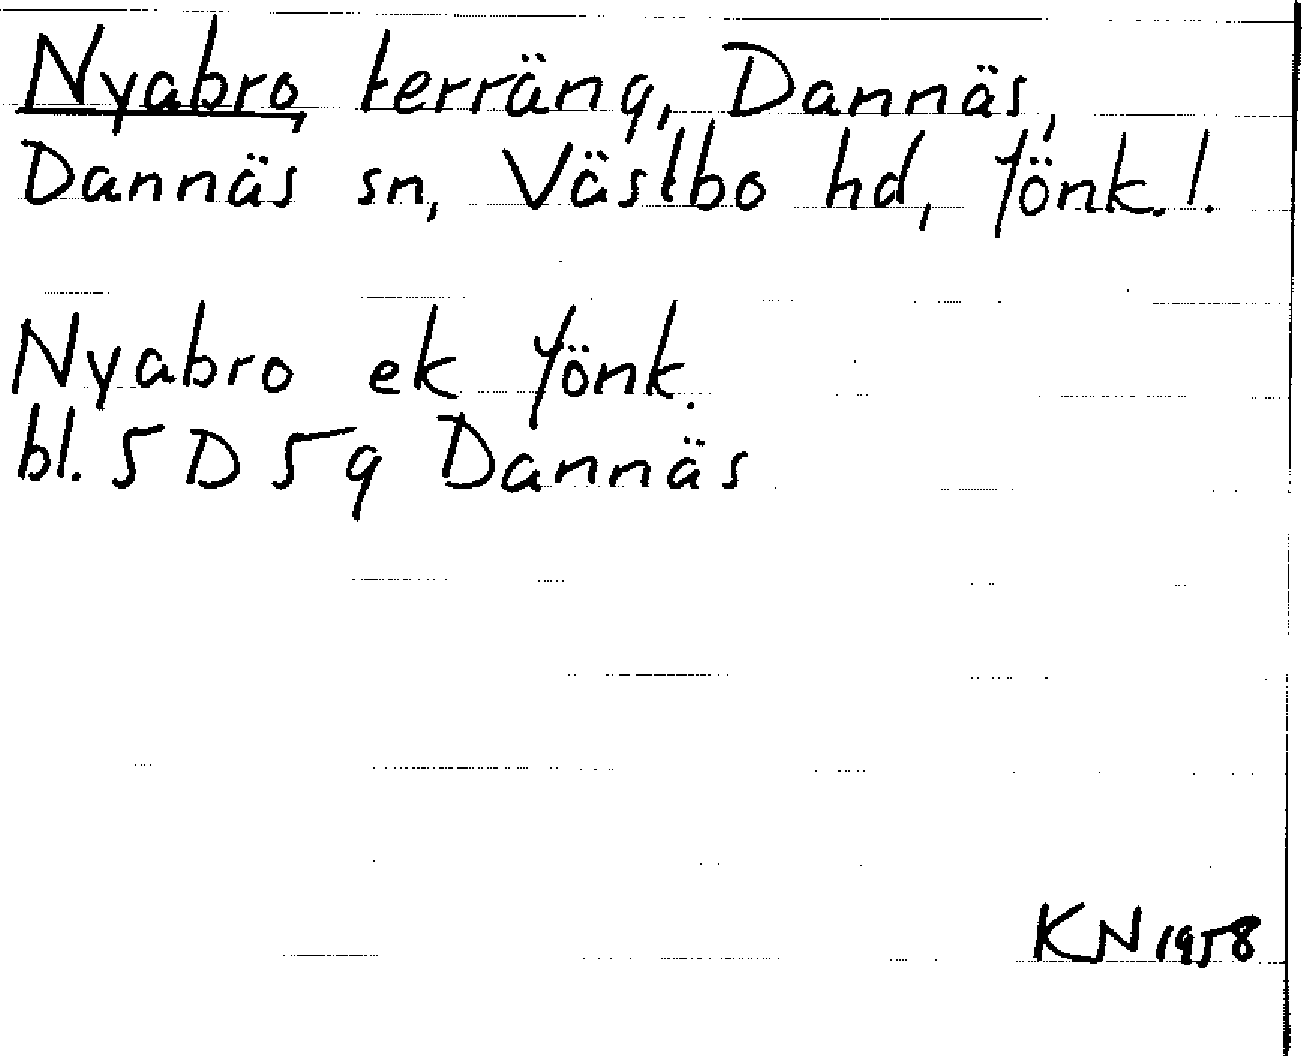 Nyabro, terräng, Dannäs,
Dannäs sn, Västbo hd, Jönk. l.
Nyabro ek Jönk.
bl. 5 D 5 g Dannäs
KN 1958